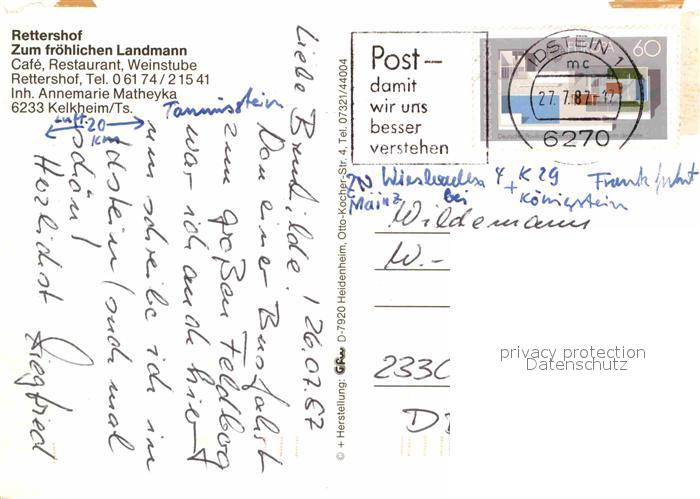 Rettershof
Zum fröhlichen Landmann
Café, Restaurant, Weinstube
Rettershof, Tel. 0 61 74 / 2 15 41
Inh. Annemarie Matheyka
6233 Kelkheim/Ts.
Luft. 20
km
Taunusstein
Liebe Brunhilde! 26.07.87
Von einer Busfahrt
zum großen Feldberg
war ich auch hier +
nun schreibe ich in
Idstein (auch mal
schön!
Herzlichst Siegfried
© + Herstellung: D-7920 Heidenheim, Otto-Kocher-Str. 4, Tel. 07321/44004
Post–
damit
wir uns
besser
verstehen
IDSTEIN 1
mc
27.7.87-17
6270
60
ZW Wiesbaden + K 29 Frankfurt
Mainz bei Königstein
Wildemann
W.-
2330
privacy protection
Datenschutz